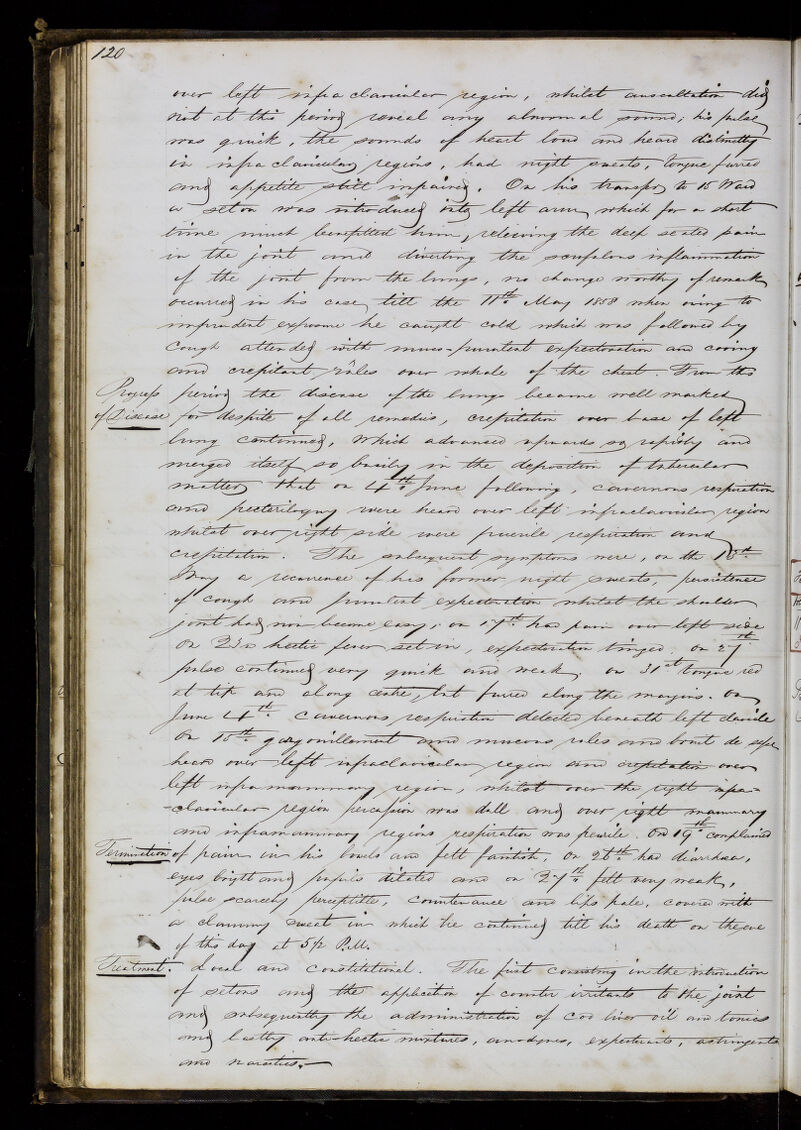 120
over left infra clavicular region, whilst auscultation did
not at this period reveal any abnormal sound; his pulse
was quick, the sounds of heart loud and heard distinctly
in infra clavicular regions, had night sweats, tongue furred
and appetite still impaired. On his transfer to 15 Ward
a seton was introduced into left arm, which for a short
time much benefitted him, relieving the deep seated pain
in the joint and diverting the scrofulous inflammation
of the joint from the lungs, no change worthy of remark
occurred in his case till the 11th May 1858 when owing to
imprudent exposure he caught cold which was followed by
cough attended with muco-purulent expectoration and cooing
and crepitant râles over whole of the chest. From this
Progress period the disease of the lungs became well marked
of Disease for despite of all remedies, crepitation over base of left
lung continued, which advanced upwards so rapidly and
merged itself so busily in the deposition of tubercular
matter that on 4th June following, cavernous respiration
and pectoriloquy were heard over left infraclavicular region
whilst over right side were puerile respiration and
crepitation. The subsequent symptoms were, on the 13th
May a recurrence of his former night sweats, persistence
of cough and purulent expectoration whilst the shoulder
joint had now become easy; on 17th had pain over left side
on 23d hectic fever set in, expectoration tinged. on 27th
pulse continued very quick and weak, on 31st tongue red
at tip and along centre, but furred along the margins. On
June 4th. Cavernous respiration detected beneath left clavicle
On 10th gargouillement and mucous rales and bruit de
heard over left infraclavicular region and crepitation over
left inframammary region, whilst over the right infra-
-clavicular region percussion was dull and over right mammary
and inframammary regions respiration was puerile. On 19th complained
Termination of pain in his bowels and felt faintish, on 26th had diarrhoea,
eyes bright and pupils dilated and on 27th felt very weak,
pulse scarcely perceptible, countenance and lips pale, covered with
a clammy sweat in which he continued till his death on the eve
of this day at 5½ P.M.
Treatment. Local and Constitutional. The first consisting in the introduction
of setons and the application of counter irritants to the joint
and subsequently the administration of Cod liver oil and tonics
and lastly anti-hectic mixtures, anodynes, expectorants, astringents
and narcotics.